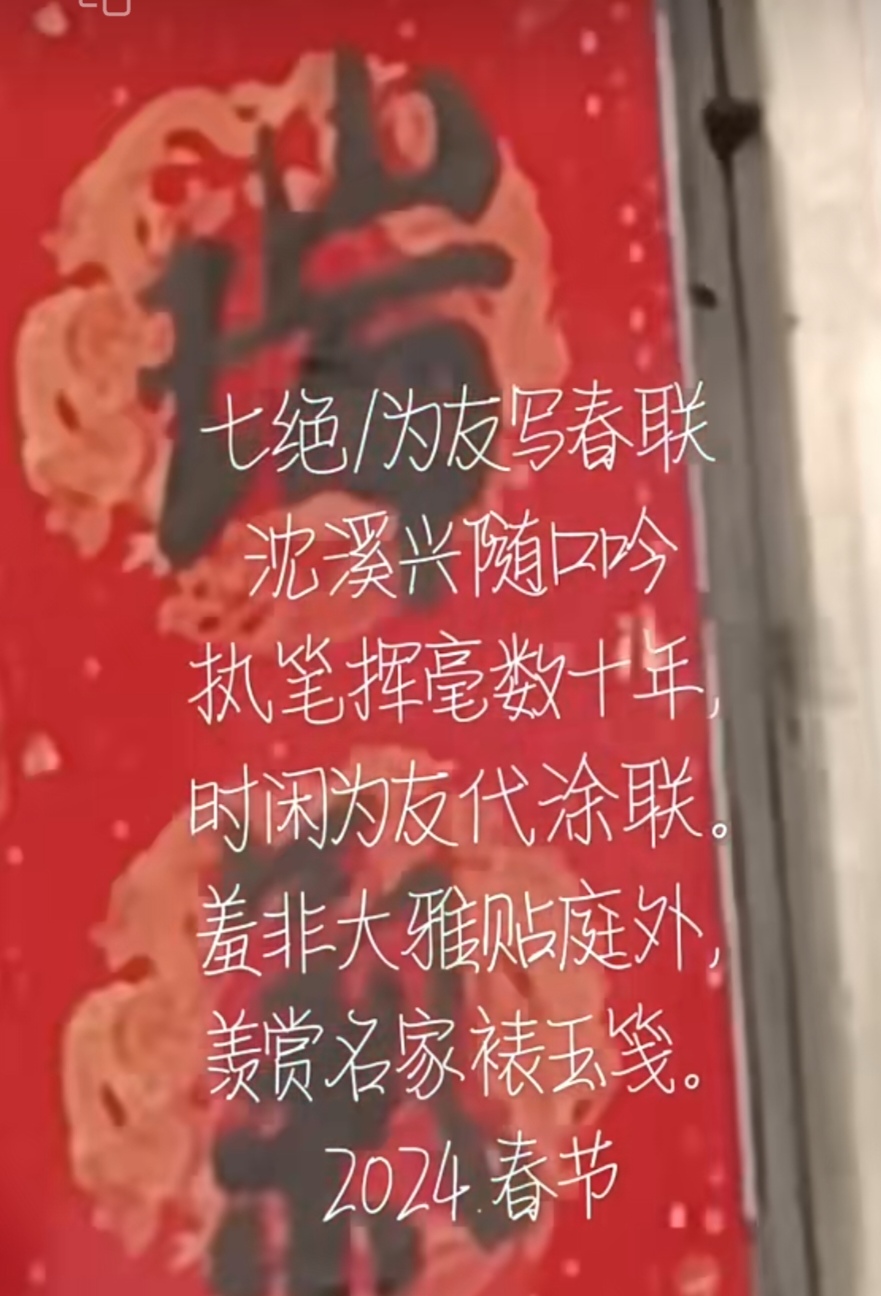 七绝/为友写春联
沈溪兴随口吟
执笔挥毫数十年,
时闲为友代涂联。
羞非大雅贴庭外,
羡赏名家裱玉笺。
2024.春节